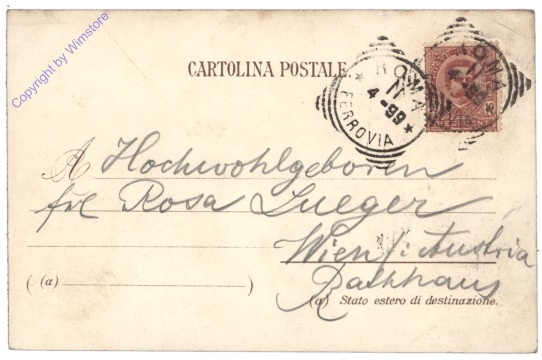 Copyright by Wimstore
CARTOLINA POSTALE
ROMA
11
4-99
FERROVIA
ROMA
11
A Hochwohlgeboren
frl Rosa Lueger
Wien /: Austria
Rathhaus
( (a) )
(a) Stato estero di destinazione.